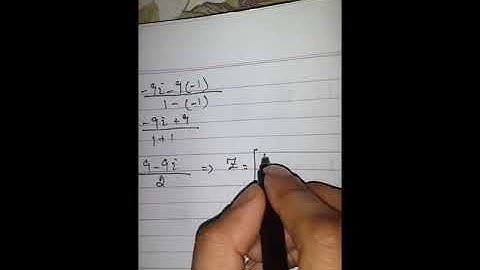 -9i-9(-1)
1-(-1)
-9i+9
1+1
9-9i
2
⇒ Z=[